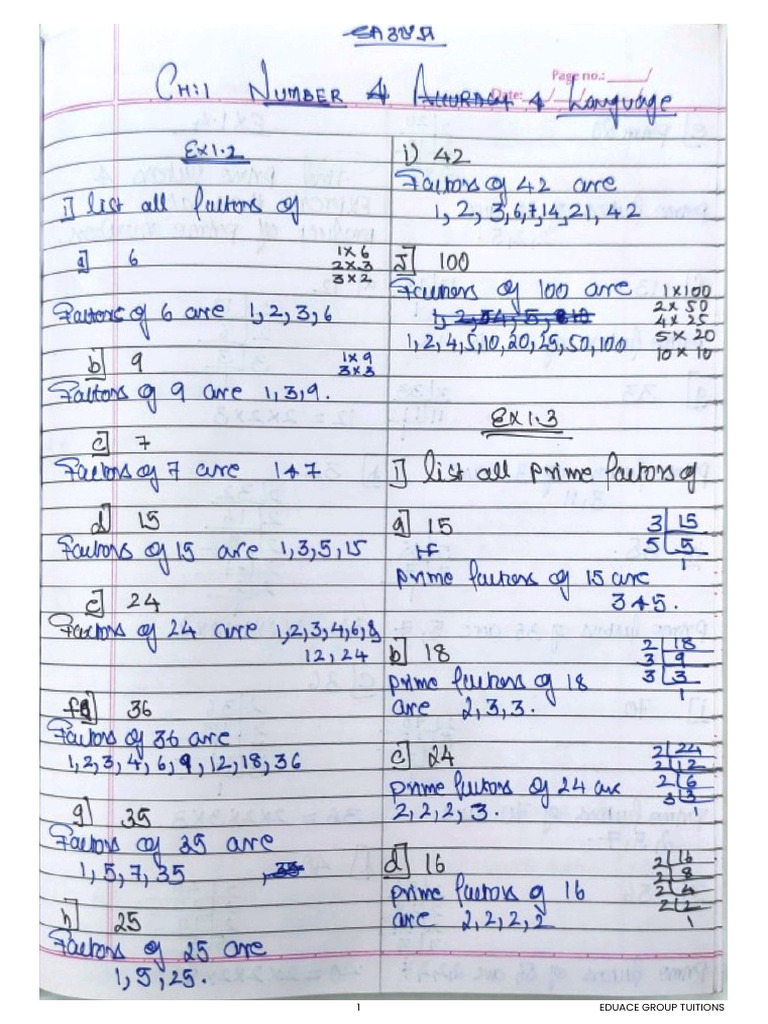 Page no.:
Date:
CH:1 NUMBER & Accuracy & Language
Ex 1.2
1] list all factors of
a] 6
1×6
2×3
3×2
Factors of 6 are 1,2,3,6
b] 9
1×9
3×3
Factors of 9 are 1,3,9.
c] 7
Factors of 7 are 1&7
d] 15
Factors of 15 are 1,3,5,15
e] 24
Factors of 24 are 1,2,3,4,6,8
12,24
f] 36
Factors of 36 are
1,2,3,4,6,9,12,18,36
g] 35
Factors of 35 are
1,5,7,35
h] 25
Factors of 25 are
1,5,25.
i) 42
Factors of 42 are
1,2,3,6,7,14,21,42
J] 100
Factors of 100 are
1×100
2×50
4×25
5×20
10×10
1,2,4,5,10,20,25,50,100
Ex 1.3
1] list all prime factors of
a] 15
3 15
5 5
1
prime factors of 15 are
3&5.
b] 18
2 18
3 9
3 3
1
prime factors of 18
are 2,3,3.
c] 24
2 24
2 12
2 6
3 3
1
prime factors of 24 are
2,2,2,3.
d] 16
2 16
2 8
2 4
2 2
1
prime factors of 16
are 2,2,2,2
1
EDUACE GROUP TUITIONS